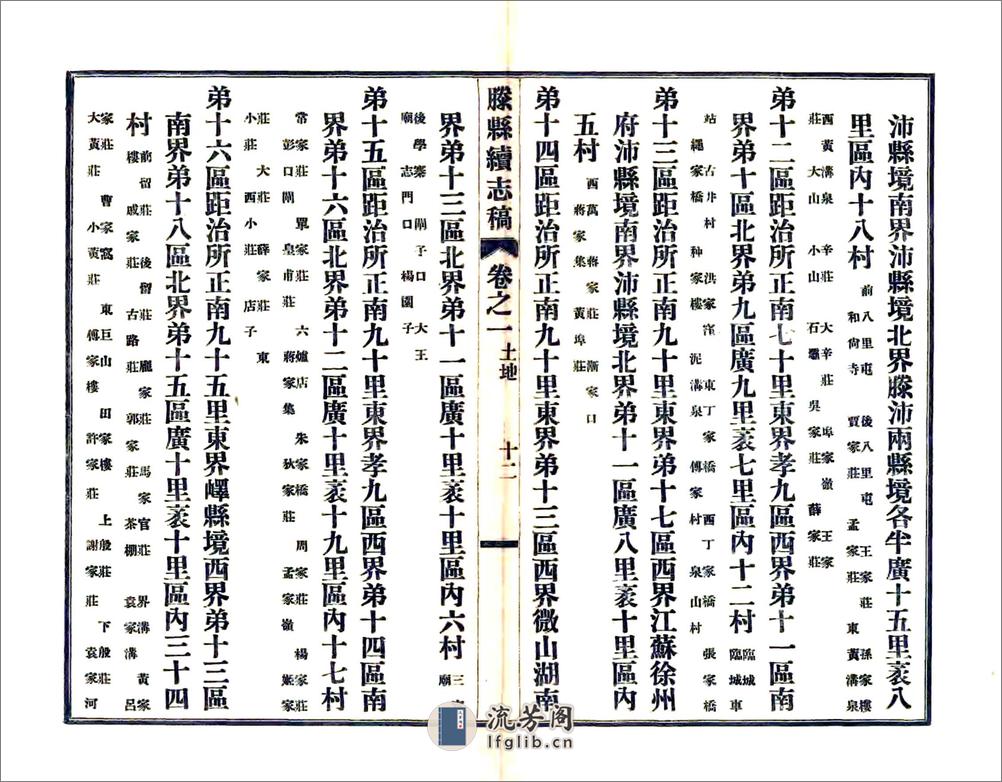 沛縣境南界沛縣境北界滕沛兩縣境各半廣十五里袤八
里區內十八村 前八里屯 後八里屯 王家莊 孫家樓
和尙寺 賈家莊 孟家莊 東黃溝泉
西黃溝泉 辛莊 大辛莊 㘵家嶺 王家
莊 大山 小山 石墨 吳家莊 薛家莊
弟十二區距治所正南七十里東界孝九區西界弟十一區南
界弟十區北界弟九區廣九里袤七里區內十二村 臨城 臨城車
站 古井村 洪家窪 東丁家橋 西丁家橋 張家橋
繩家橋 种家樓 泥溝泉 傅家村 泉山村
弟十三區距治所正南九十里東界弟十七區西界江蘇徐州
府沛縣境南界沛縣境北界弟十一區廣八里袤十里區內
五村 西萬 蔣家莊 漸家口
蔣家集 黃埠莊
弟十四區距治所正南九十里東界弟十三區西界微山湖南
滕縣續志稿 卷之一 土地 十二
界弟十三區北界弟十一區廣十里袤十里區內六村 三
廟
後學寨 閘子口 大王
廟 志門口 楊園子
弟十五區距治所正南九十里東界孝九區西界弟十四區南
界弟十六區北界弟十二區廣十里袤十九里區內十七村
常家莊 單家莊 六爐店 朱家橋 周家莊 楊家莊
彭口閘 皇甫莊 蔣家集 狄家莊 孟家嶺 姬家
莊 大莊 薛家莊 東
小莊 西小莊 店子
弟十六區距治所正南九十五里東界嶧縣境西界弟十三區
南界弟十八區北界弟十五區廣十里袤十里區內三十四
村 前留莊 後留莊 龐家莊 馬家官莊 界溝 黃家
樓 戚家莊 古路莊 郭家莊 茶棚 袁家溝 呂
家莊 曹家窩 東巨山 田家樓 上殷莊 下殷莊
大黃莊 小黃莊 傅家樓 許家莊 謝家莊 袁家河
流芳阁
lfglib.cn